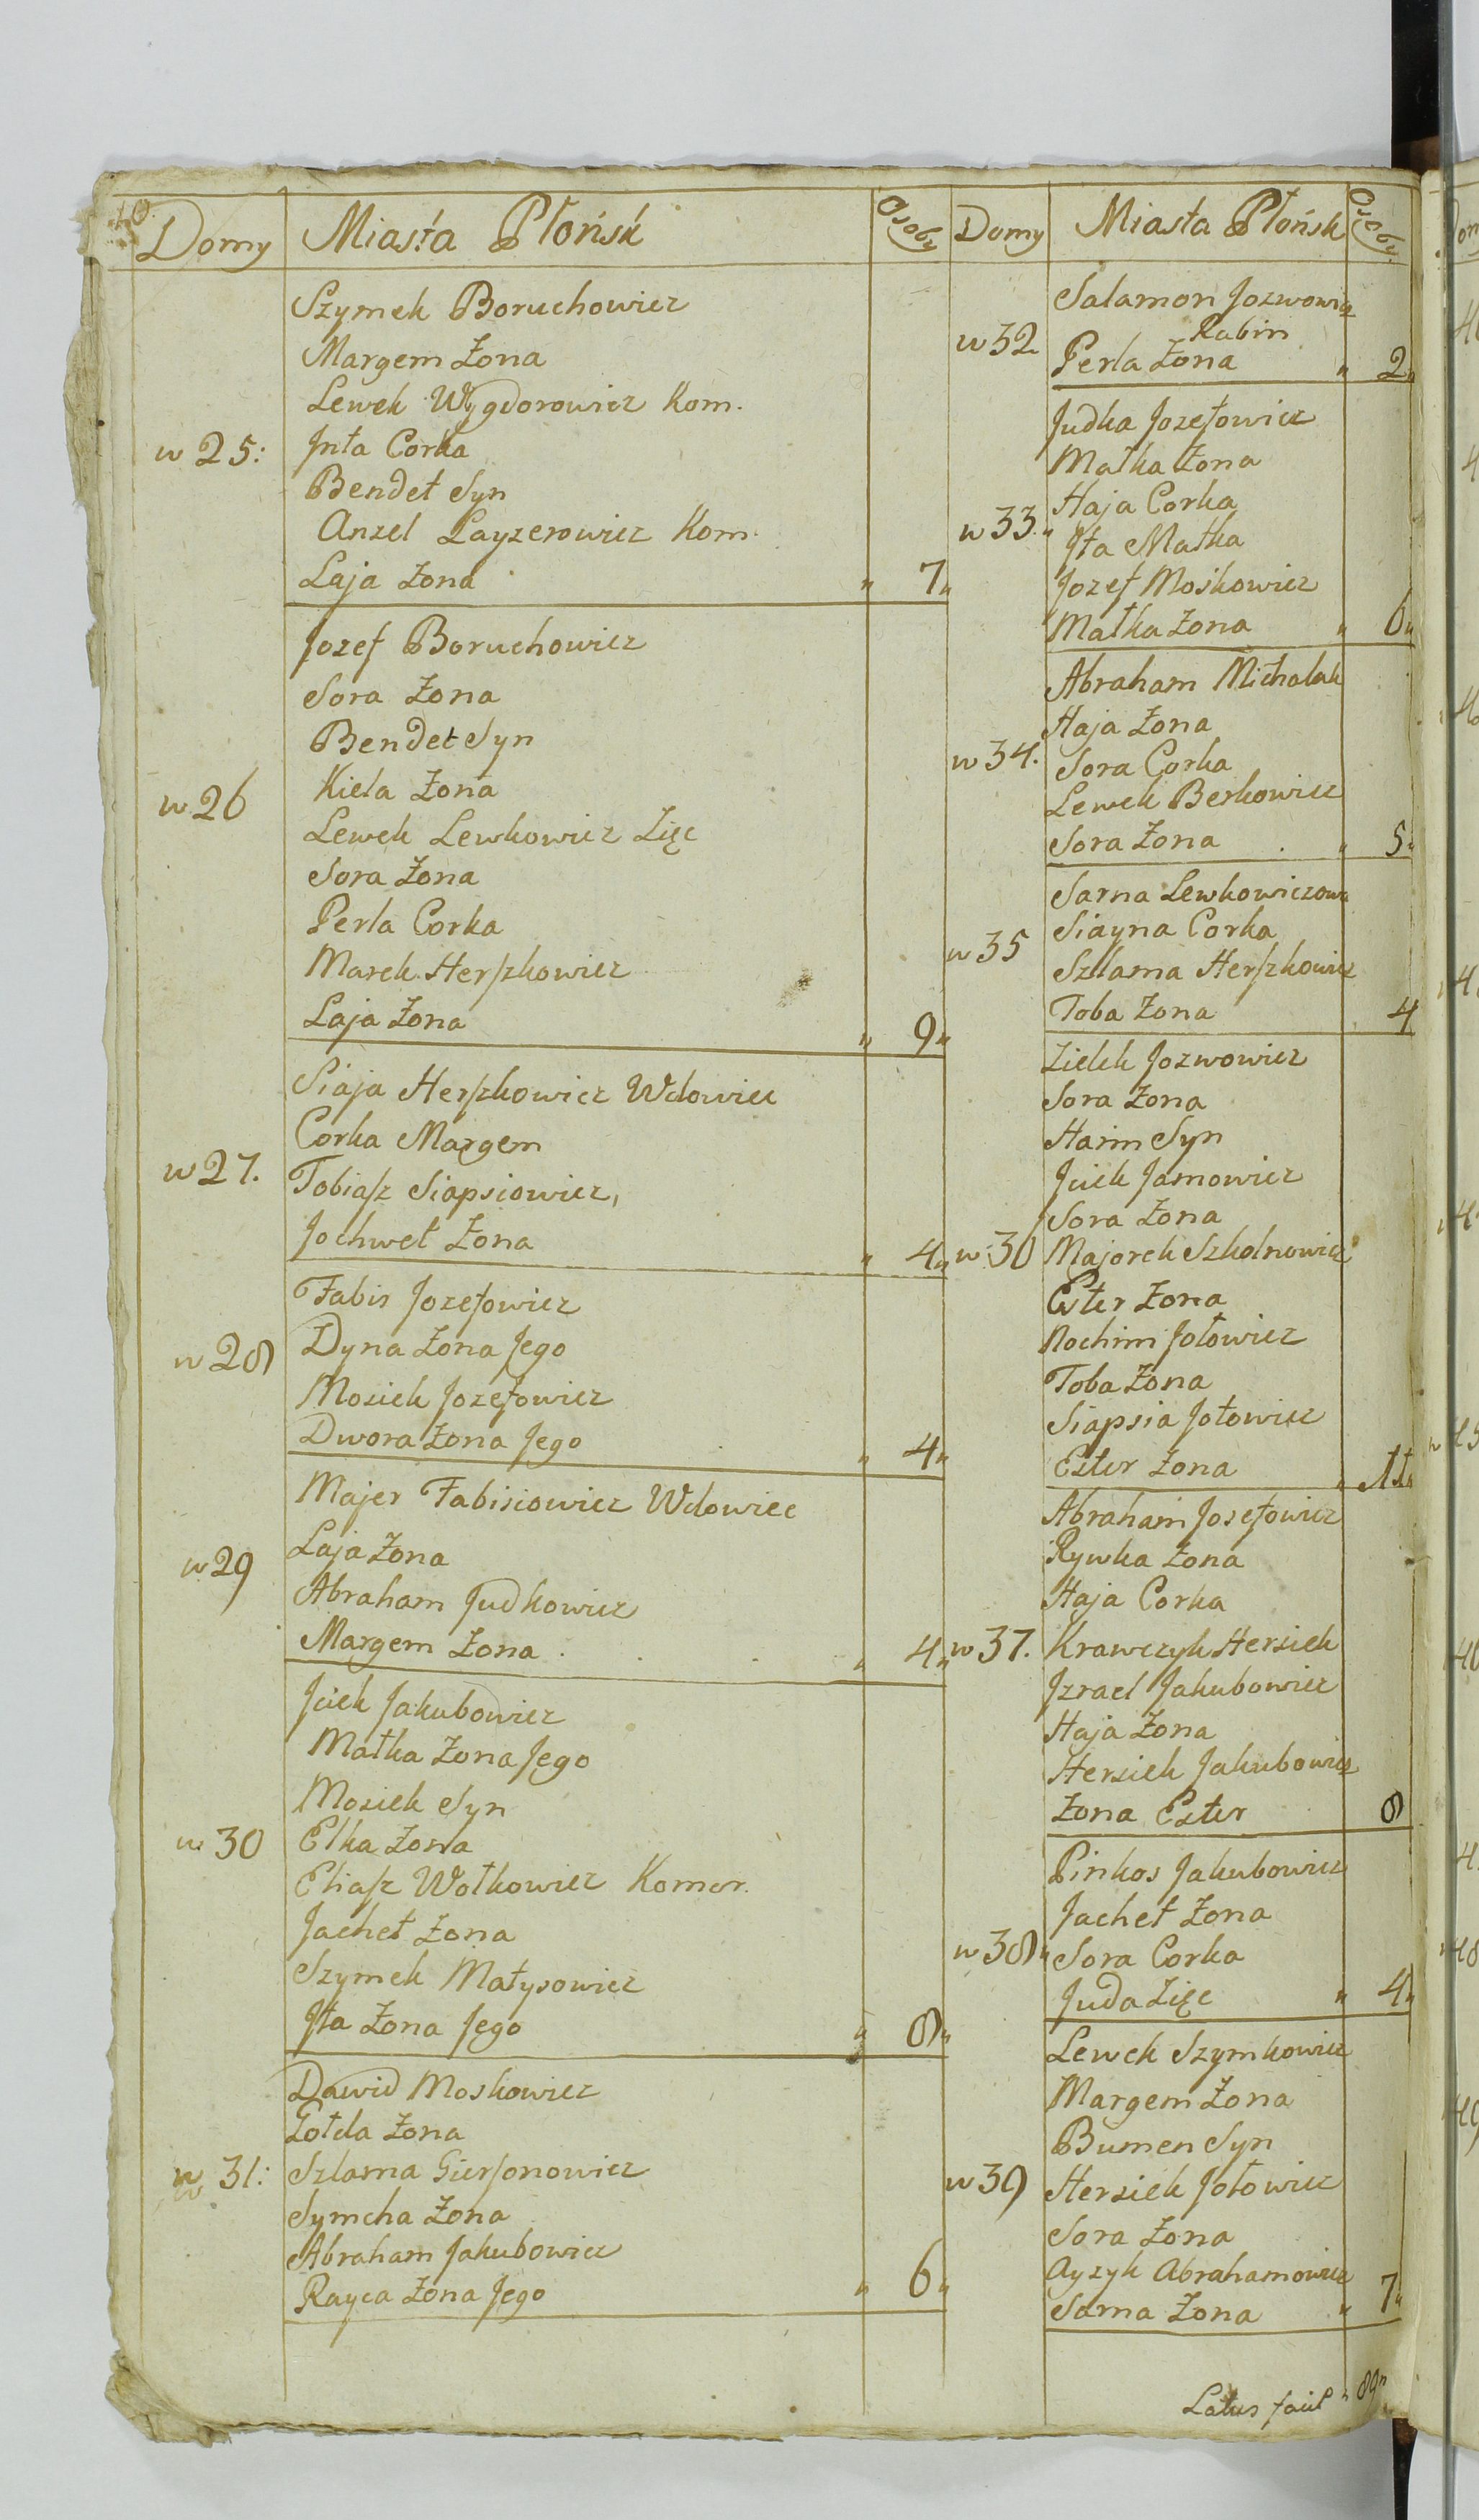 10.
Domy Miasta Płońsk Osoby
Szymek Boruchowicz
Margem Żona
Lewek Wygdorowicz Kom.
w 25: Jnta Corka
Bendet Syn
Anzel Layzerowicz Kom.
Laja Żona " 7"
Jozef Boruchowicz
Sora Żona
Bendet Syn
w 26 Kiela Żona
Lewek Lewkowicz Zięc
Sora Żona
Perla Corka
Marek Herszkowicz
Laja Żona " 9"
Siaja Herszkowicz Wdowiec
Corka Margem
w 27. Tobiasz Siapsiowicz,
Jochwet Żona " 4"
Fabis Jozefowicz
w 28 Dyna Żona Jego
Mosiek Jozefowicz
Dwora Żona Jego " 4"
Majer Fabisiowicz Wdowiec
w 29 Laja Żona
Abraham Judkowicz
Margem Żona " 4"
Jciek Jakubowicz
Małka Żona Jego
Mosiek Syn
w 30 Elka Żona
Eliasz Wolkowicz Komor.
Jachet Żona
Szymek Matysowicz
Jta Żona Jego " 8"
Dawid Moskowicz
Gołda Żona
w 31: Szlama Gierszonowicz
Symcha Żona
Abraham Jakubowicz
Rayca Żona Jego " 6"
Domy Miasta Płońsk Osoby
Salamon Jozwowicz
Rabin
w 32 Perla Żona " 2"
Judka Jozefowicz
Małka Żona
Haja Corka
w 33. Jta Matka
Jozef Mośkowicz
Małka Żona " 6"
Abraham Michalak
Haja Żona
w 34. Sora Corka
Lewek Berkowicz
Sora Żona " 5"
Sarna Lewkowiczowa
w 35 Siayna Corka
Szlama Herszkowicz
Toba Żona 4
Zielek Jozwowicz
Sora Żona
Haim Syn
Jciek Jamowicz
Sora Żona
w 36 Majorek Szkolnowicz
Ester Żona
Nochim Jotowicz
Toba Żona
Siapsia Jotowicz
Ester Żona " 11"
Abraham Josefowicz
Rywka Żona
Haja Corka
w 37. Krawczyk Hersiek
Jzrael Jakubowicz
Haja Żona
Hersiek Jakubowicz
Żona Ester 8
Pinkos Jakubowicz
Jachet Żona
w 38" Sora Corka
Juda Zięc " 4"
Lewek Szymkowicz
Margem Żona
Bumen Syn
w 39 Hersiek Jotowicz
Sora Żona
Ayzyk Abrahamowicz
Sarna Żona " 7"
Latus facit " 89"